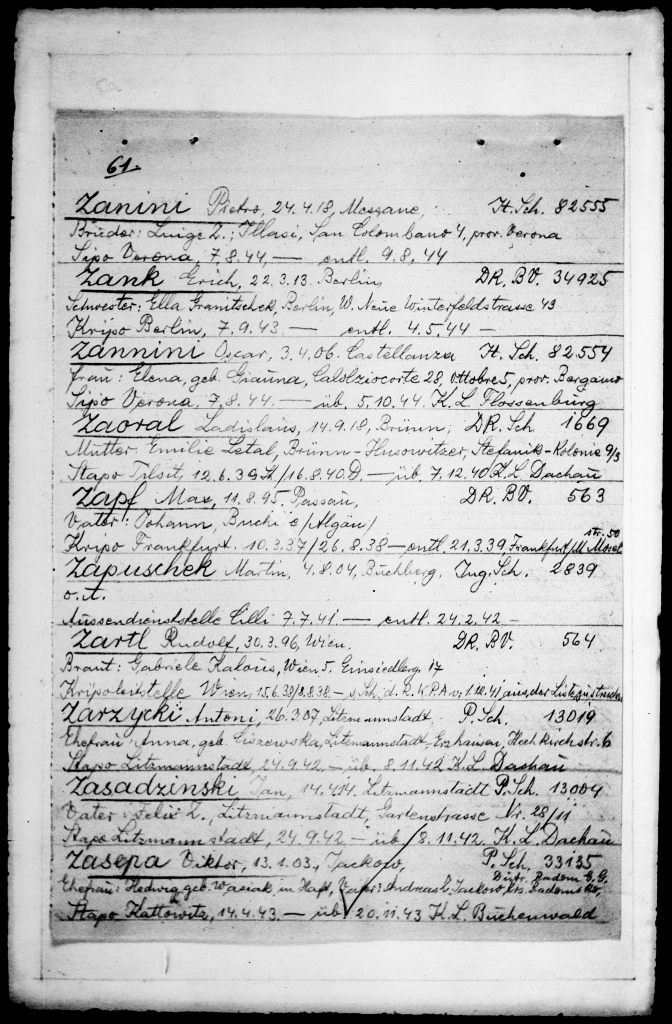 61.
Zanini Pietro, 24.4.18, Mezzane, It. Sch. 82555
Brüder: Luigi Z.; Illasi, San Colombano 4, prov. Verona
Sipo Verona, 7.8.44 — entl. 9.8.44
Zank Erich, 22.3.13. Berlin, DR. BV. 34925
Schwester: Ella Granitschek, Berlin, W. Neue Winterfeldstrasse 43
Kripo Berlin, 7.9.43. — entl. 4.5.44 —
Zannini Oscar, 3.4.06. Castellanza It. Sch. 82554
Frau: Elena, geb. Giauna, Calolziocorte 28, Ottobre 5, prov. Bergamo
Sipo Verona, 7.8.44. — üb. 5.10.44. K.L. Flossenbürg
Zaoral Ladislaus, 14.9.18, Brünn; DR. Sch 1669
Mutter: Emilie Letal, Brünn-Husowitzer, Stefanik-Kolonie 9/3
Stapo Tilsit, 12.6.39 /16.8.40 D. — üb. 7.12.40 K.L. Dachau
Zapf Max, 11.8.95. Passau, DR. BV. 563
Vater: Johann, Buchi /Algäu/
str. 50
Kripo Frankfurt. 10.3.37/26.8.38 — entl. 21.3.39, Frankfurt/M. Mosel
Zapuschek Martin, 4.8.04, Buchberg. Jug. Sch. 2839
o. A.
Aussendienststelle Cilli 7.7.41. — entl. 24.2.42 —
Zartl Rudolf, 30.3.96, Wien, DR. BV. 564
Braut: Gabriele Kalous, Wien 5. Einsiedlerg. 17
Kripoleitstelle Wien, 15.6.38/8.8.38 — s. Sch. d. R.K.P.A v. 1.12.41 aus der Liste zu streichen
Zarzycki Antoni, 26.3.07, Litzmannstadt P. Sch. 13019
Ehefrau: Anna, geb. Ciszewska, Litzmannstadt, Erzhausen, Hochkirchstr. 6
Stapo Litzmannstadt, 24.9.42. — üb. 8.11.42 K.L. Dachau
Zasadzinski Jan, 14.4.14. Litzmannstadt P. Sch. 13004
Vater: Felix Z., Litzmannstadt, Gartenstrasse Nr. 28/11
Stapo Litzmannstadt, 24.9.42 — üb. 8.11.42. K.L. Dachau
Zasepa Viktor, 13.1.03, Jackow, P. Sch. 33135
Distr. Radom G.G.
Ehefrau: Hedwig geb. Wasiak, in Haft, Vater: Andreas Jackow, krs. Radomsko,
Stapo Kattowitz, 14.4.43. — üb. 20.11.43 K.L. Buchenwald